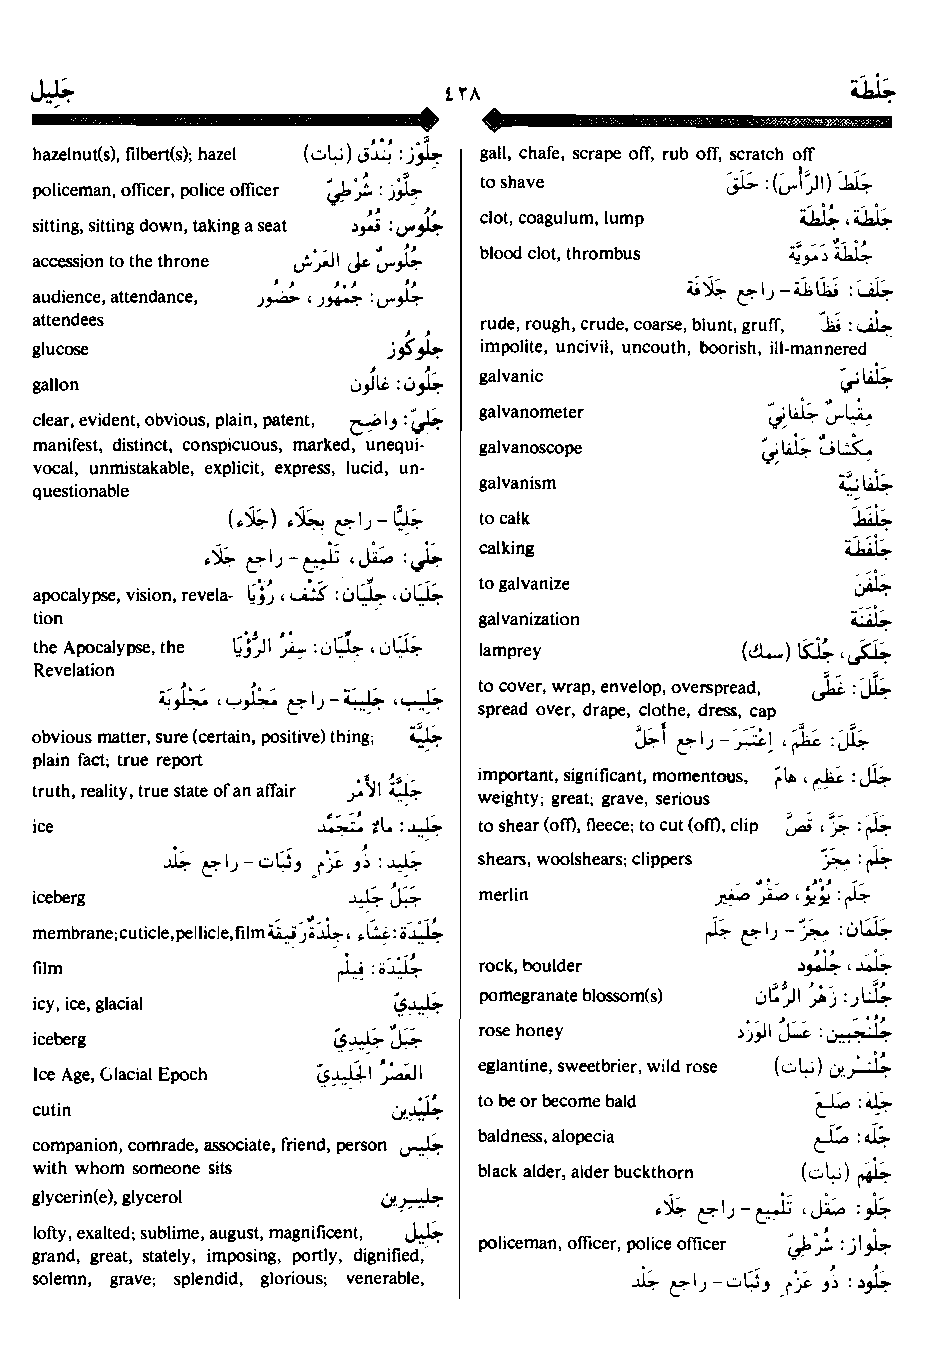 جَلْطَة ٤٢٨ جَلِيل
gall, chafe, scrape off, rub off, scratch off
جَلَطَ (الرَّأْسَ): حَلَقَ to shave
جَلْطَة، جُلْطَة clot, coagulum, lump
جُلْطَةٌ دَمَوِيَّة blood clot, thrombus
جَلَفَ: فَظَاظَة - راجع جَلَافَة
جِلْف: فَظّ rude, rough, crude, coarse, blunt, gruff,
impolite, uncivil, uncouth, boorish, ill-mannered
جَلْفَانيّ galvanic
مِقْيَاسٌ جَلْفَانِيّ galvanometer
مِكْشَافٌ جَلْفَانِيّ galvanoscope
جَلْفَانِيَّة galvanism
جَلْفَطَ to calk
جَلْفَطَة calking
جَلْفَنَ to galvanize
جَلْفَنَة galvanization
جَلَكَى، جُلْكَا (سمك) lamprey
جَلَّلَ: غَطَّى to cover, wrap, envelop, overspread,
spread over, drape, clothe, dress, cap
جَلَّلَ: عَظَّمَ، اِعْتَبَرَ - راجع أَجَلَّ
جَلَل: عَظِيم، هَامّ important, significant, momentous,
weighty; great; grave, serious
جَلَمَ: جَزَّ، قَصَّ to shear (off), fleece; to cut (off), clip
جَلَم: مِجَزّ shears, woolshears; clippers
جَلَم: يُؤْيُؤ، صَقْرٌ صَغِير merlin
جَلَمَان: مِجَزّ - راجع جَلَم
جَلْمَد، جُلْمُود rock, boulder
جُلَّنَار: زَهْرُ الرُّمَّان pomegranate blossom(s)
جُلَنْجَبِين: عَسَلُ الوَرْد rose honey
جُلَنْسْرِين (نبات) eglantine, sweetbrier, wild rose
جَلِهَ: صَلِعَ to be or become bald
جَلَه: صَلَع baldness, alopecia
جَلْهَم (نبات) black alder, alder buckthorn
جَلْو: صَقْل، تَلْمِيع - راجع جَلَاء
جِلْوَاز: شُرْطِيّ policeman, officer, police officer
جَلُود: ذُو عَزْمٍ وثَبَات - راجع جَلْد
جِلَّوْز: بُنْدُق (نبات) hazelnut(s), filbert(s); hazel
جِلَّوْز: شُرْطِيّ policeman, officer, police officer
جُلُوس: قُعُود sitting, sitting down, taking a seat
جُلُوسٌ على العَرْش accession to the throne
جُلُوس: جُمْهُور، حُضُور audience, attendance,
attendees
جُلُوكُوز glucose
جَلُون: غَالُون gallon
جَلِيّ: واضِح clear, evident, obvious, plain, patent,
manifest, distinct, conspicuous, marked, unequi-
vocal, unmistakable, explicit, express, lucid, un-
questionable
جَلِيًّا - راجع بِجَلَاء (جَلَاء)
جَلْي: صَقْل، تَلْمِيع - راجع جَلَاء
جَلَيَان، جِلِّيَان: كَشْف، رُؤْيَا apocalypse, vision, revela-
tion
جَلَيَان، جِلِّيَان: سِفْرُ الرُّؤْيَا the Apocalypse, the
Revelation
جَلِيب، جَلِيبَة - راجع مَجْلُوب، مَجْلُوبَة
جَلِيَّة obvious matter, sure (certain, positive) thing;
plain fact; true report
جَلِيَّةُ الأَمْر truth, reality, true state of an affair
جَلِيد: مَاءٌ مُتَجَمِّد ice
جَلِيد: ذُو عَزْمٍ وثَبَات - راجع جَلْد
جَبَلُ جَلِيد iceberg
جُلَيْدَة: غِشَاء، جِلْدَةٌ رَقِيقَة membrane; cuticle, pellicle, film
جُلَيْدَة: فِيلْم film
جَلِيدِيّ icy, ice, glacial
جَبَلٌ جَلِيدِيّ iceberg
العَصْرُ الجَلِيدِيّ Ice Age, Glacial Epoch
جُلَيْدِين cutin
جَلِيس companion, comrade, associate, friend, person
with whom someone sits
جليسرين glycerin(e), glycerol
جَلِيل lofty, exalted; sublime, august, magnificent,
grand, great, stately, imposing, portly, dignified,
solemn, grave; splendid, glorious; venerable,